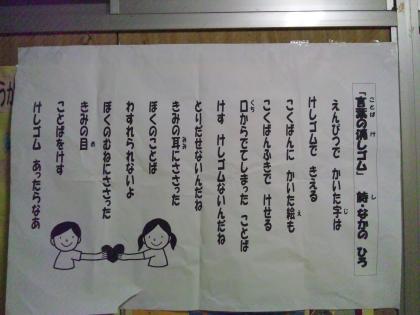 「言葉の消しゴム」 詩・なかの ひろ
えんぴつで かいた字は
けしゴムで きえる
こくばんに かいた絵も
こくばんふきで けせる
口からでてしまった ことば
けす けしゴムないんだね
とりだせないんだね
きみの耳にささった
ぼくのことば
わすれられないよ
ぼくのむねにささった
きみの目
ことばをけす
けしゴム あったらなあ